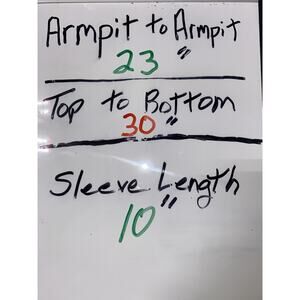 Armpit to Armpit
23 "
Top to Bottom
30 "
Sleeve Length
10 "